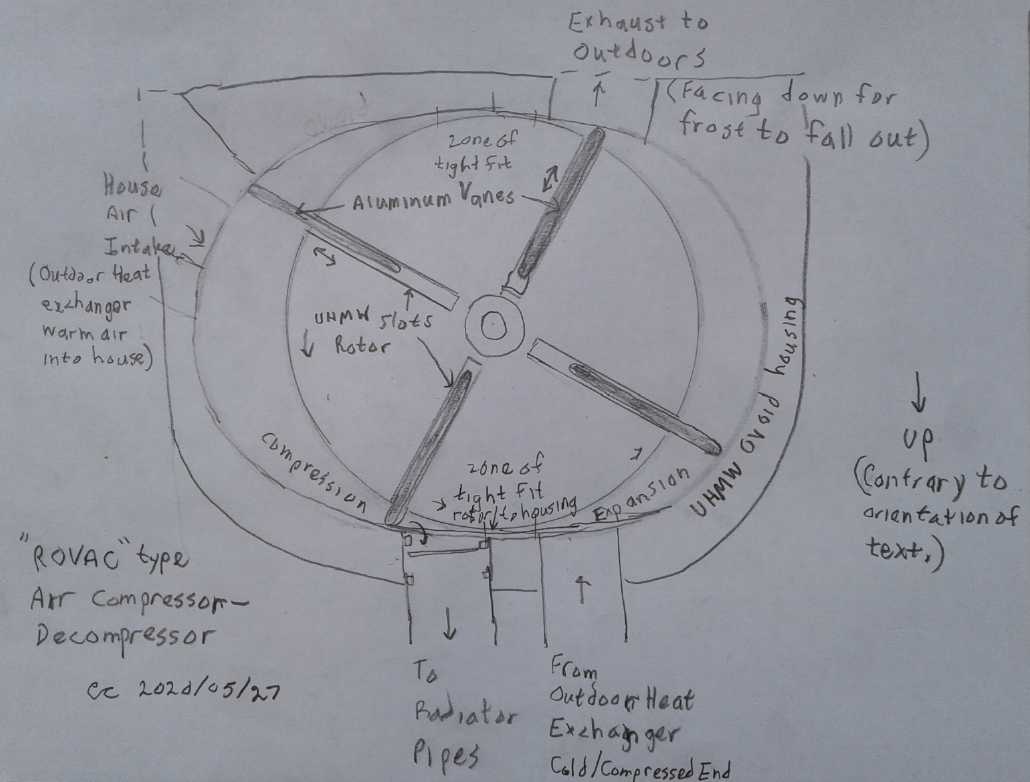 Exhaust to
Outdoors
(Facing down for
frost to fall out)
zone of
tight fit
Aluminum Vanes
House
Air
Intake
(Outdoor Heat
exchanger
warm air
into house)
UHMW slots
Rotor
UHMW ovoid housing
compression
zone of
tight fit
rotor to housing
Expansion
UP
(Contrary to
orientation of
text.)
"ROVAC" type
Air Compressor-
Decompressor
cc 2020/05/27
To
Radiator
Pipes
From
Outdoor Heat
Exchanger
Cold/Compressed End